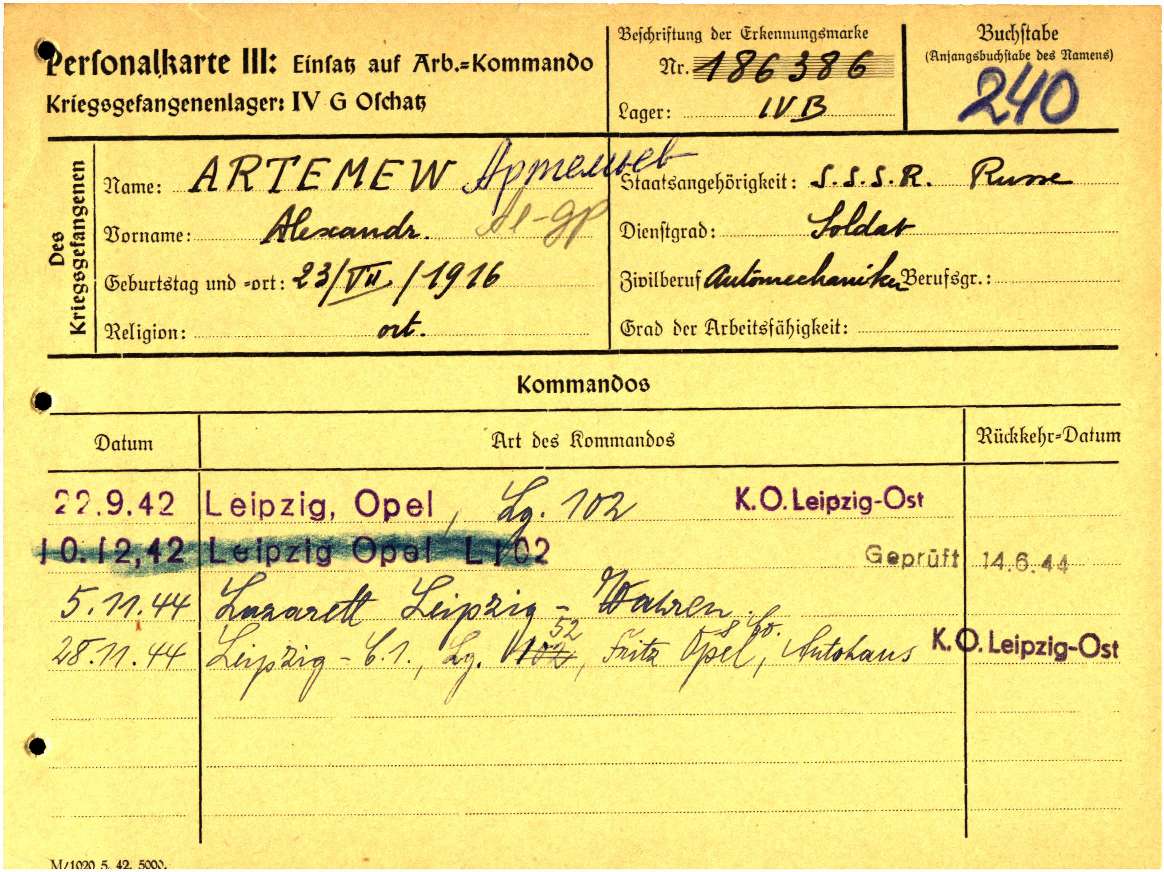 Personalkarte III: Einsatz auf Arb.=Kommando
Kriegsgefangenenlager: IV G Oschatz
Beschriftung der Erkennungsmarke
Nr. 186386
Lager: IV B
Buchstabe
(Anfangsbuchstabe des Namens)
240
Des Kriegsgefangenen
Name: ARTEMEW Артемьев
Vorname: Alexandr. Ал-др
Geburtstag und =ort: 23/VII./1916
Religion: ort.
Staatsangehörigkeit: S.S.S.R. Russe
Dienstgrad: Soldat
Zivilberuf Automechaniker Berufsgr.:
Grad der Arbeitsfähigkeit:
Kommandos
Datum Art des Kommandos Rückkehr=Datum
22.9.42 Leipzig, Opel, Lg. 102 K.O. Leipzig-Ost
10.12.42 Leipzig Opel L 102 Geprüft 14.6.44
5.11.44 Lazarett Leipzig - Wahren.
28.11.44 Leipzig - C.1., Lg. 102 52, Fritz Opel & Co., Autohaus K.O. Leipzig-Ost
M/1020 5. 42. 5000.